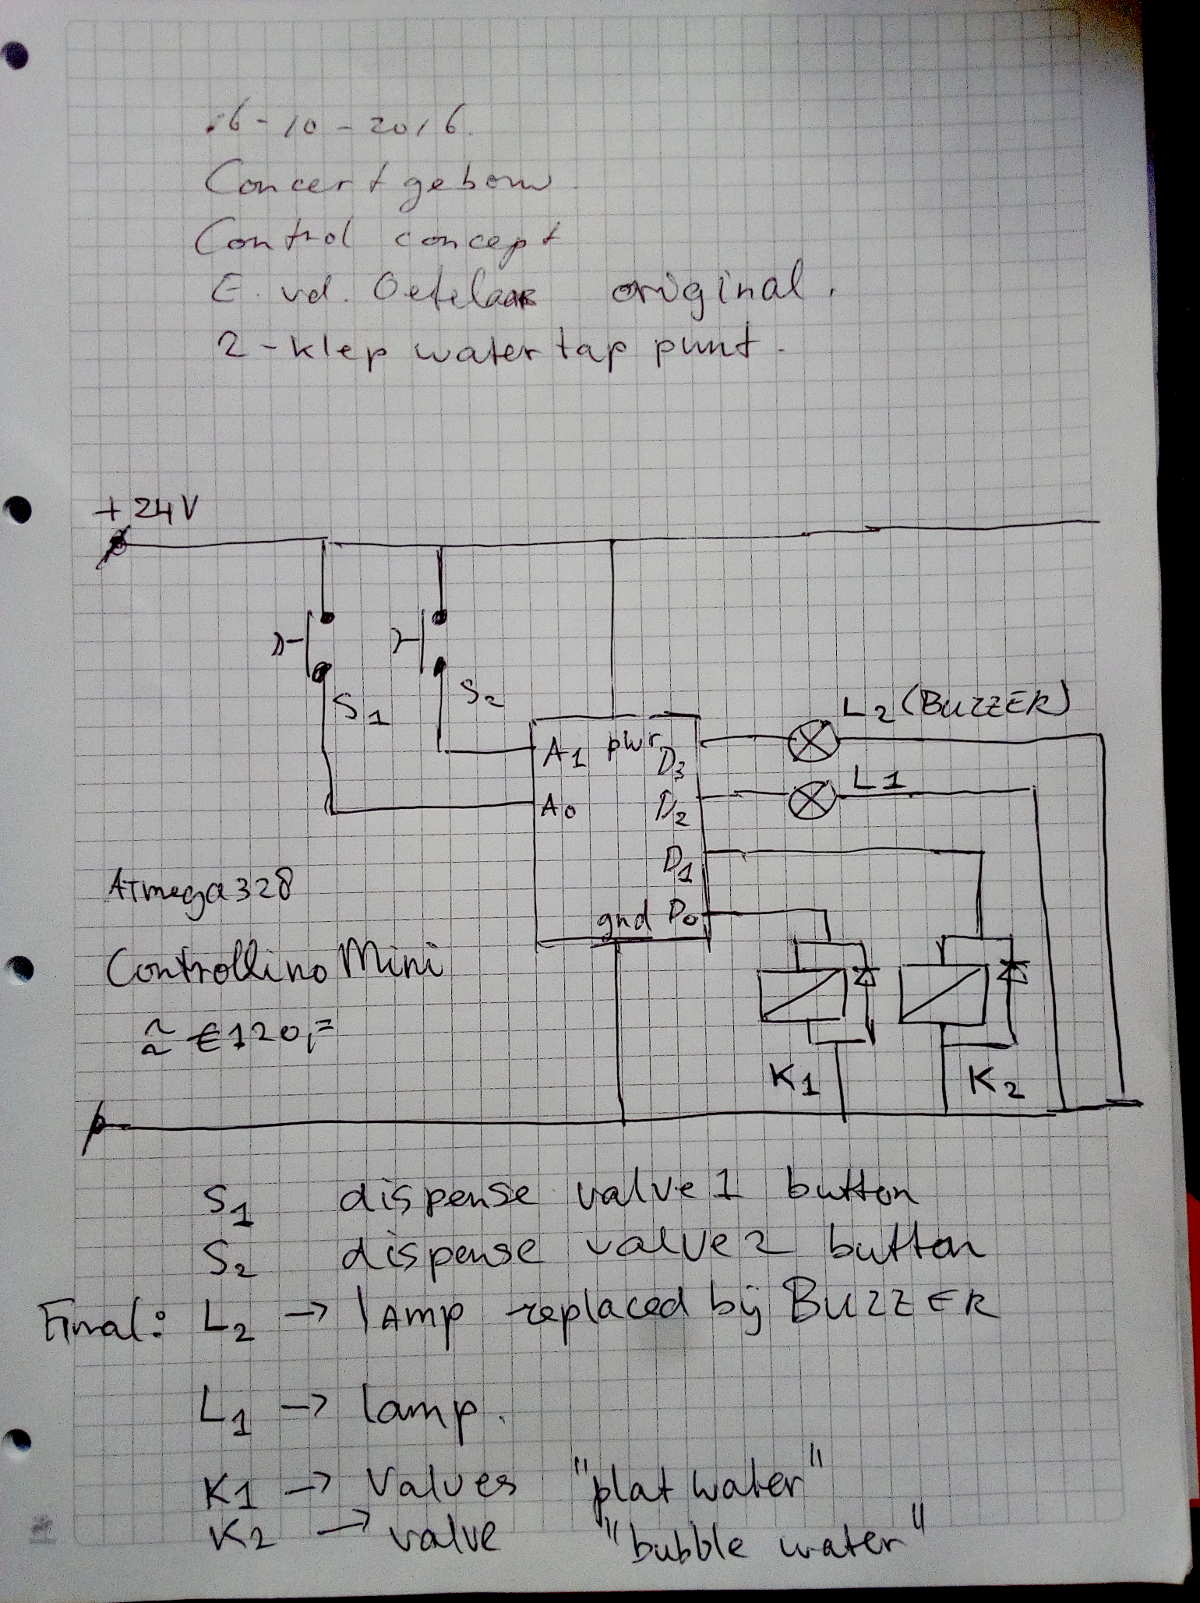 6-10-2016.
Concertgebouw
Control concept
E. vd. Oetelaar original.
2-klep water tap punt.
+24V
S1
S2
L2 (BUZZER)
A1 pwr D3
L1
A0 D2
D1
ATmega328
gnd D0
Controllino Mini
≈ €120,=
K1 K2
S1 dispense valve 1 button
S2 dispense valve 2 button
Final: L2 → lamp replaced bij BUZZER
L1 → lamp.
K1 → Valves "plat water"
K2 → valve "bubble water"